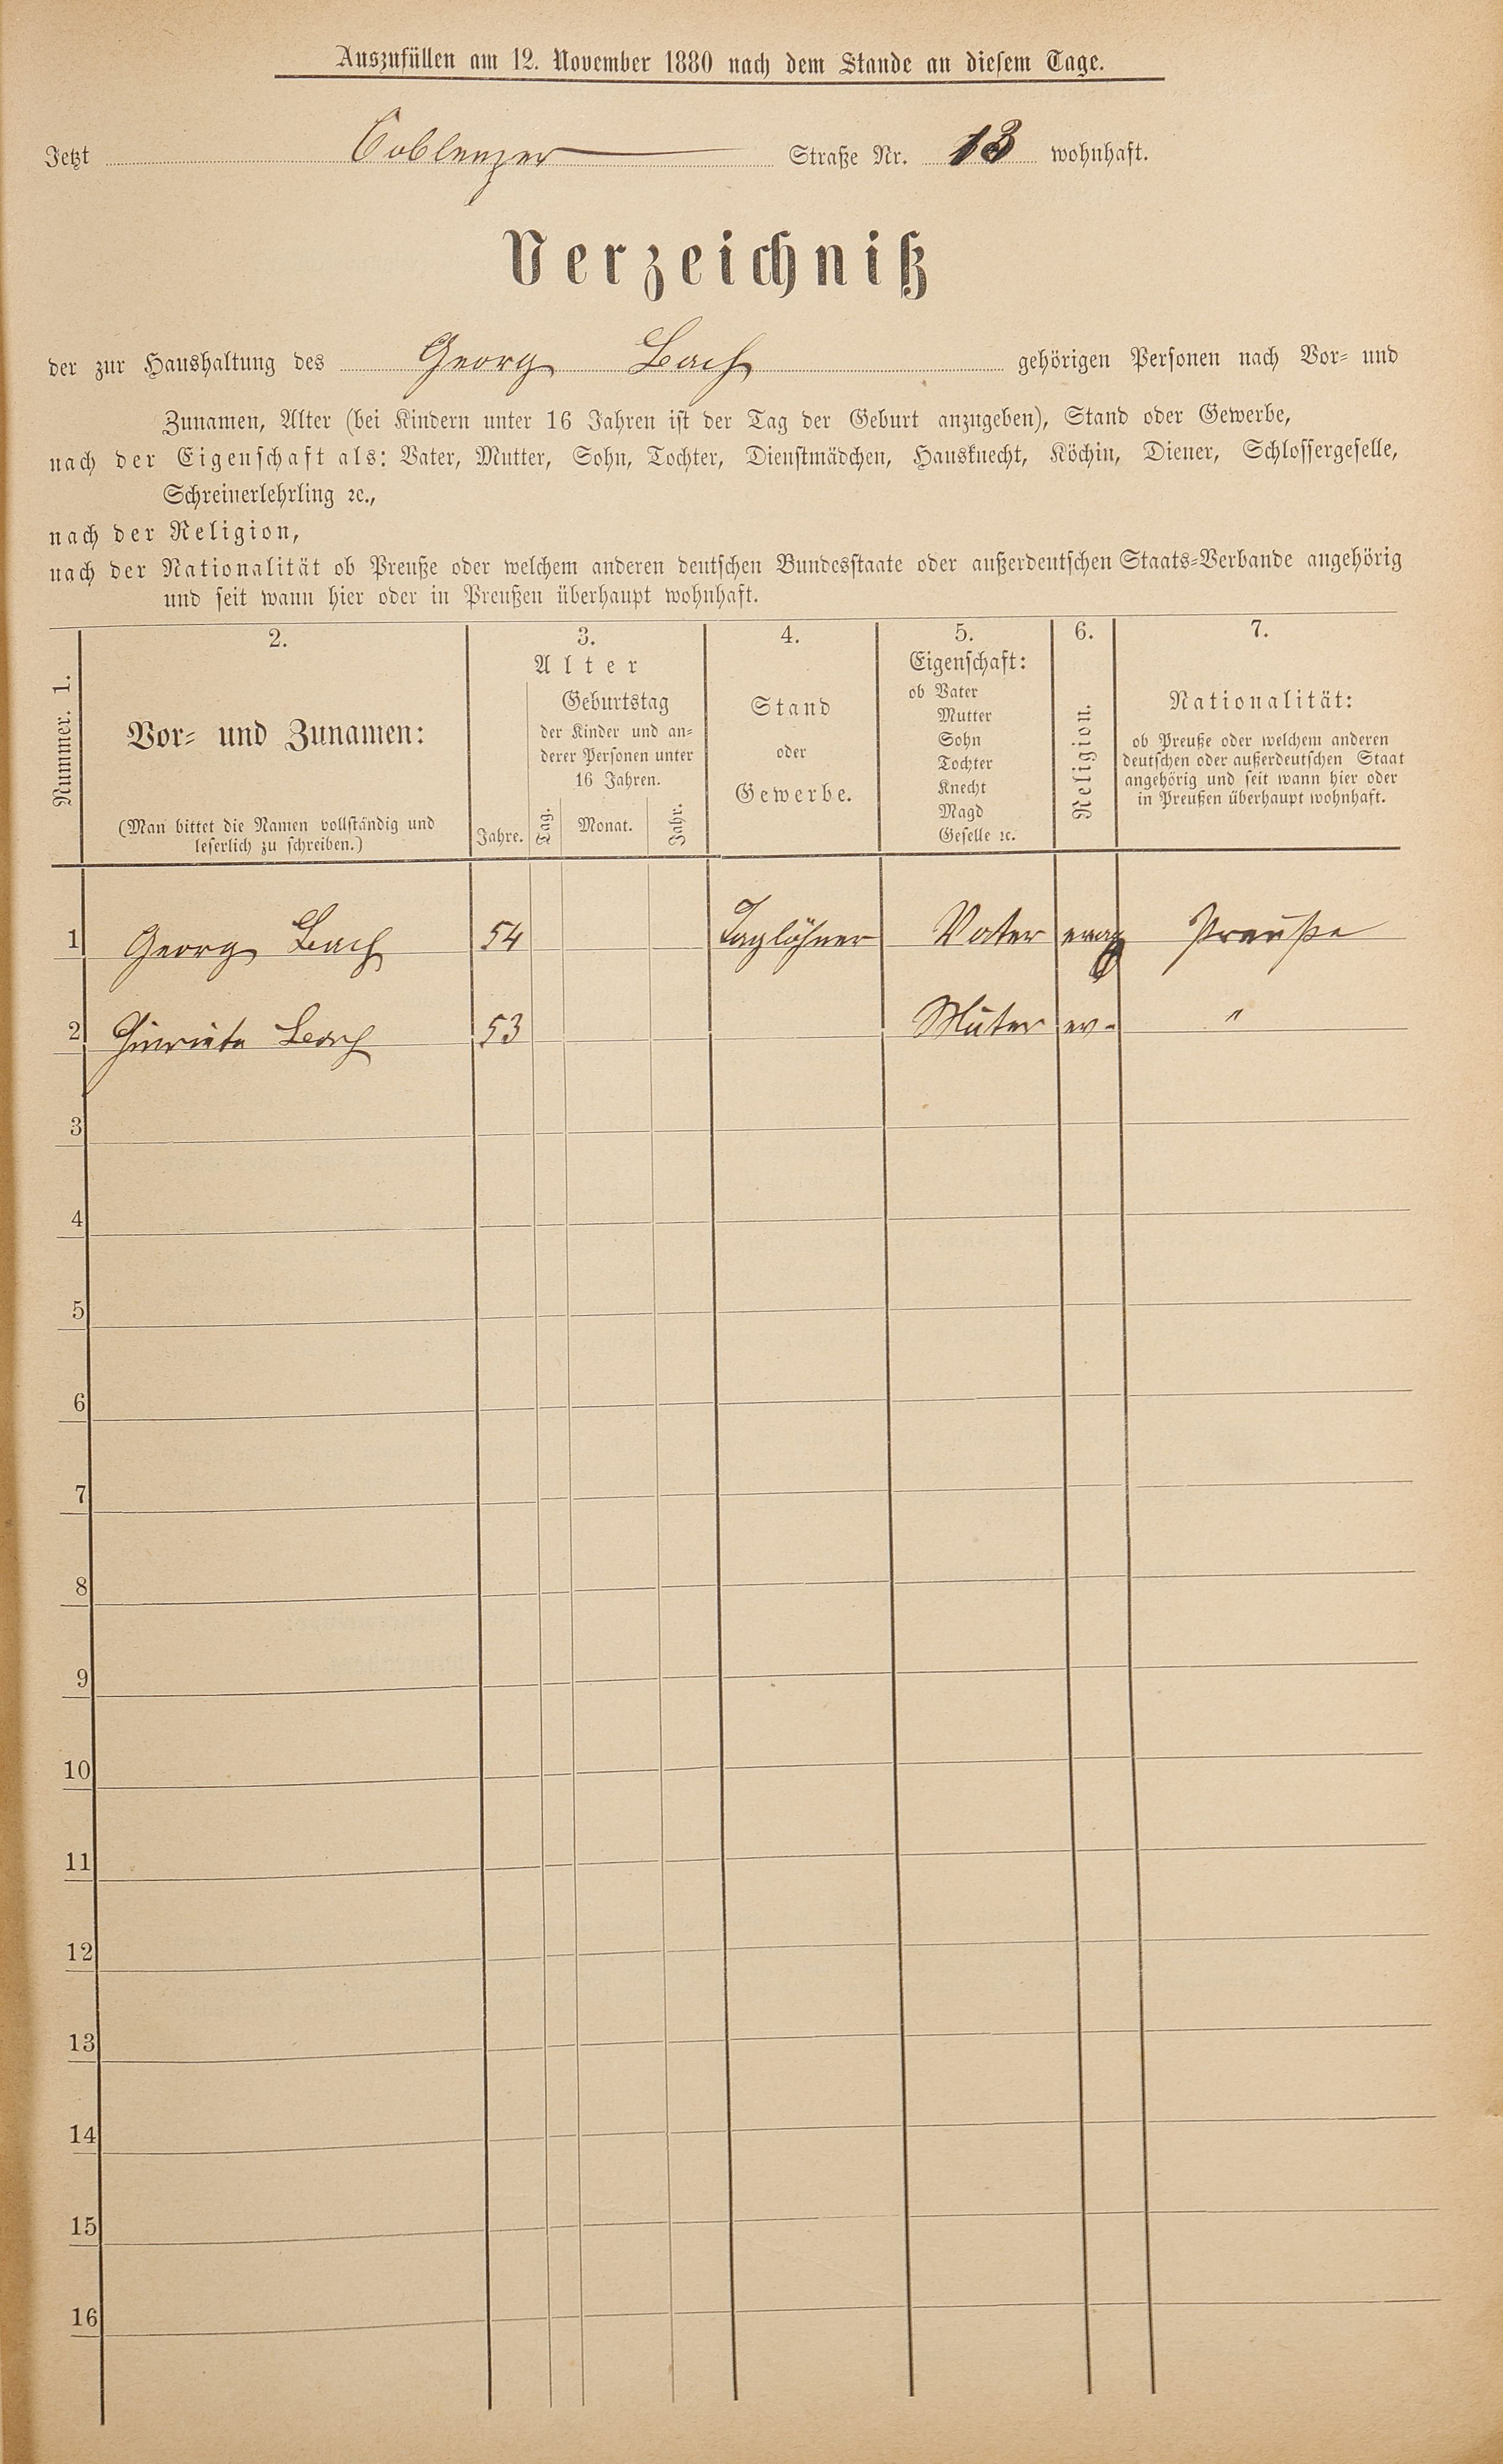 Auszufüllen am 12. November 1880 nach dem Stande an diesem Tage.
Jetzt Coblenzer Straße Nr. 13 wohnhaft.
Verzeichniß
der zur Haushaltung des Georg Bach gehörigen Personen nach Vor- und
Zunamen, Alter (bei Kindern unter 16 Jahren ist der Tag der Geburt anzugeben), Stand oder Gewerbe,
nach der Eigenschaft als: Vater, Mutter, Sohn, Tochter, Dienstmädchen, Hausknecht, Köchin, Diener, Schlossergeselle,
Schreinerlehrling ꝛc.,
nach der Religion,
nach der Nationalität ob Preuße oder welchem anderen deutschen Bundesstaate oder außerdeutschen Staats-Verbande angehörig
und seit wann hier oder in Preußen überhaupt wohnhaft.
Nummer. 1.
2.
Vor- und Zunamen:
(Man bittet die Namen vollständig und
leserlich zu schreiben.)
3.
Alter
Jahre.
Geburtstag
der Kinder und an-
derer Personen unter
16 Jahren.
Tag. Monat. Jahr.
4.
Stand
oder
Gewerbe.
5.
Eigenschaft:
ob Vater
Mutter
Sohn
Tochter
Knecht
Magd
Geselle ꝛc.
6.
Religion.
7.
Nationalität:
ob Preuße oder welchem anderen
deutschen oder außerdeutschen Staat
angehörig und seit wann hier oder
in Preußen überhaupt wohnhaft.
1 Georg Bach 54 Taglöhner Vater evag Preuße
2 Hinriete Bach 53 Muter ev- "
3
4
5
6
7
8
9
10
11
12
13
14
15
16